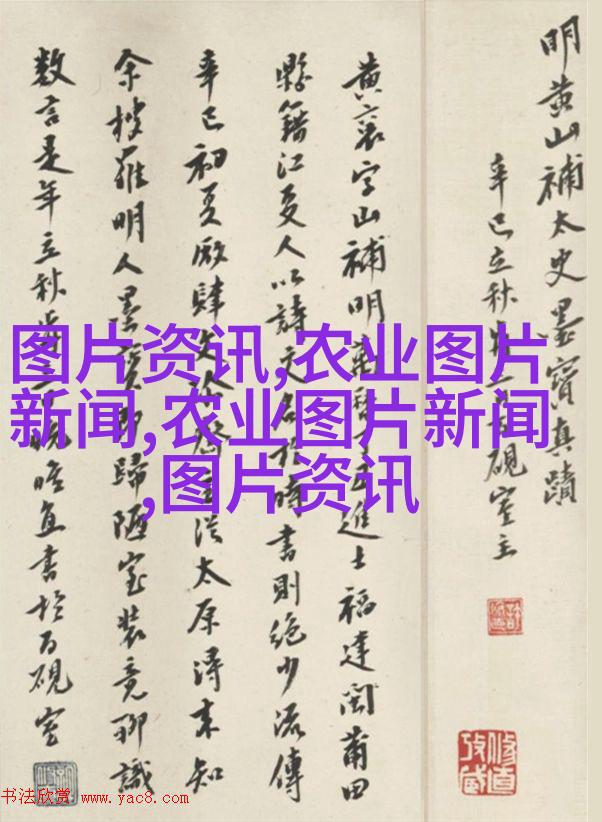 明黄山補太史墨寶真蹟
辛巳立秋
硯室主
黄襄字山補明
進士福建閩莆田
縣籍江夏人以詩文名於時書則絶少流傳
辛巳初夏廠肆
太原得来知
余搜羅明人墨寳
歸陋室装竟聊識
數言是年立秋
直書於百硯室
图片资讯,农业图片
新闻,农业图片新闻
,图片资讯
书法欣赏 www.yac8.com